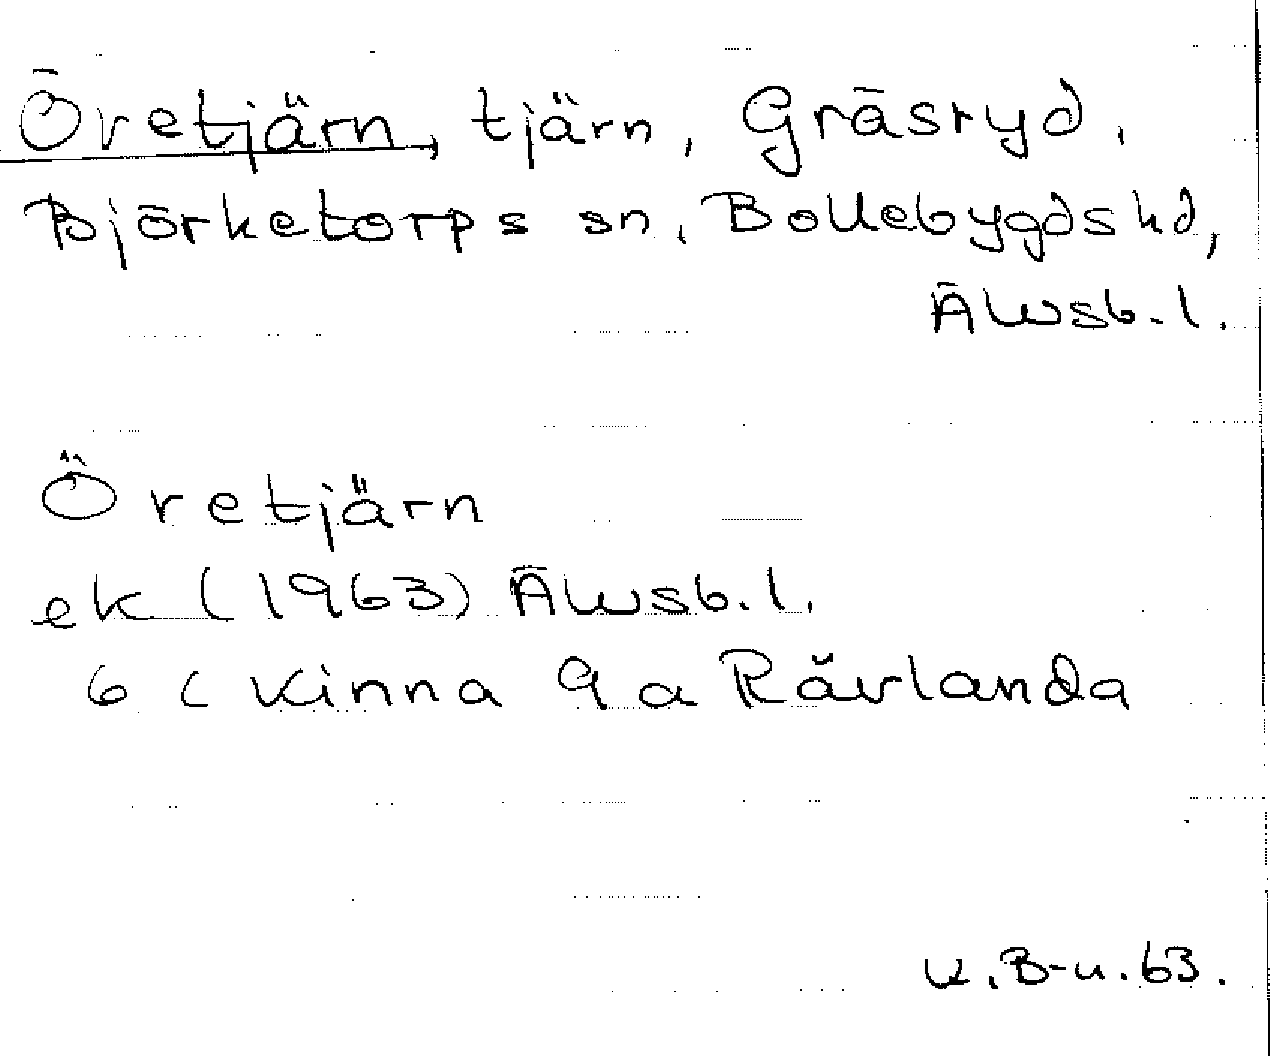 Öretjärn, tjärn, Gräsryd,
Björketorps sn, Bollebygds hd,
Älvsb. l.
Öretjärn
ek (1963) Älvsb. l.
6 C Kinna 9 a Rävlanda
K. B-n. 63.